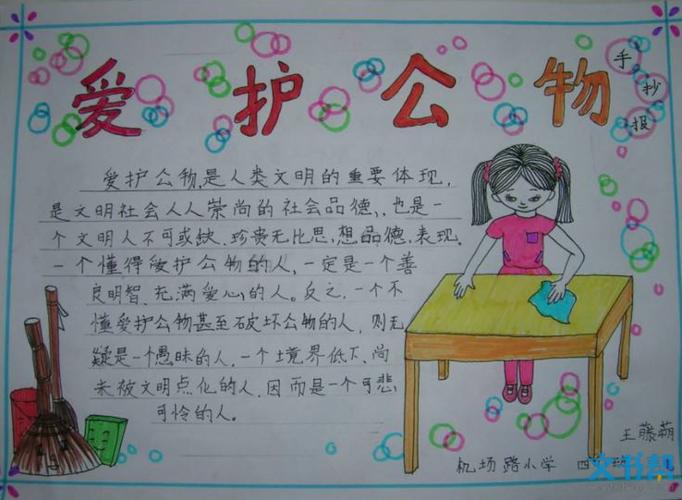 爱护公物
手抄报
爱护公物,是人类文明的重要体现,
是文明社会人人崇尚的社会品德,也是一
个文明人不可或缺、珍贵无比思,想品德,表现。
一个懂得爱护公物的人,一定是一个善
良明智、充满爱心的人。反之,一个不
懂爱护公物甚至破坏公物的人,则无
疑是一个愚昧的人,一个境界低下,尚
未被文明点化的人,因而是一个可悲
可怜的人。
王藤萌
机场路小学 四
文书帮